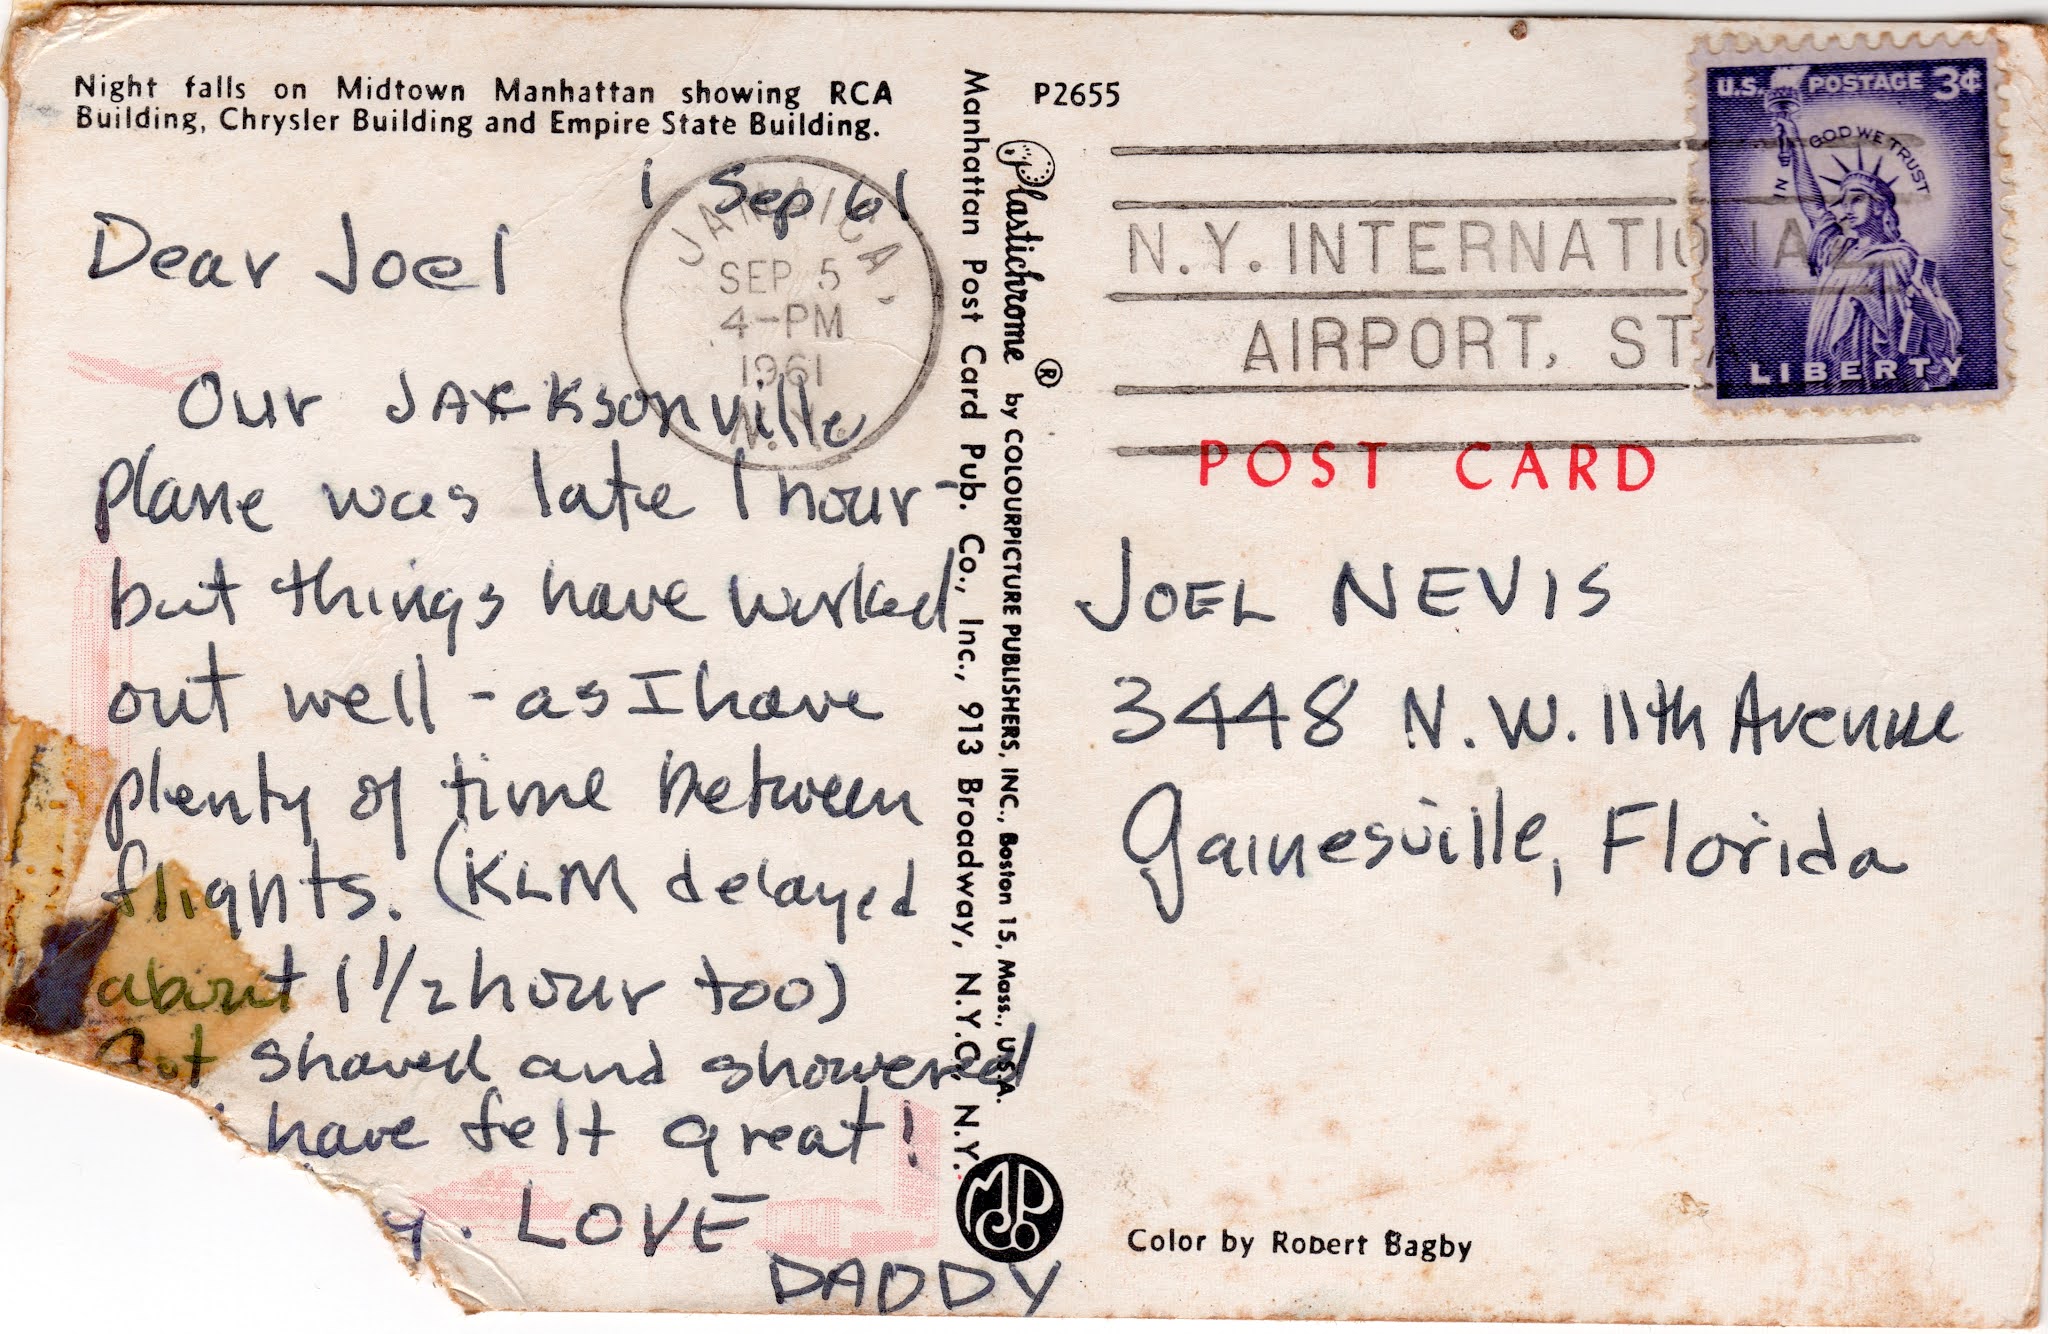 Night falls on Midtown Manhattan showing RCA
Building, Chrysler Building and Empire State Building.
1 Sep 61
Dear Joel
Our JACKsonville
plane was late 1 hour-
but things have worked
out well - as I have
plenty of time between
flights. (KLM delayed
about 1 1/2 hour too)
Got shaved and showered
have felt great!
y. LOVE
DADDY
JAMAICA,
SEP 5
4-PM
1961
N.Y.
Manhattan Post Card Pub. Co., Inc., 913 Broadway, N.Y.C., N.Y.
Plastichrome ® by COLOURPICTURE PUBLISHERS, INC., Boston 15, Mass., U.S.A.
P2655
N.Y. INTERNATIONAL
AIRPORT, STA
U.S. POSTAGE 3¢
IN GOD WE TRUST
LIBERTY
POST CARD
JOEL NEVIS
3448 N.W. 11th Avenue
Gainesville, Florida
Color by Robert Bagby